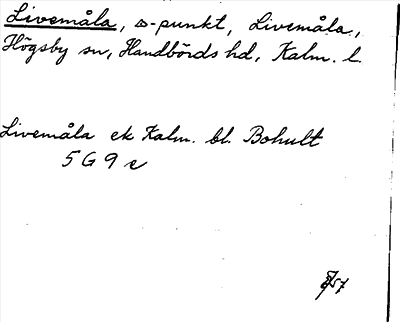 Livemåla, s-punkt, Livemåla,
Högsby sn, Handbörds hd, Kalm. l.
Livemåla ek Kalm. bl. Bohult
5 G 9 e